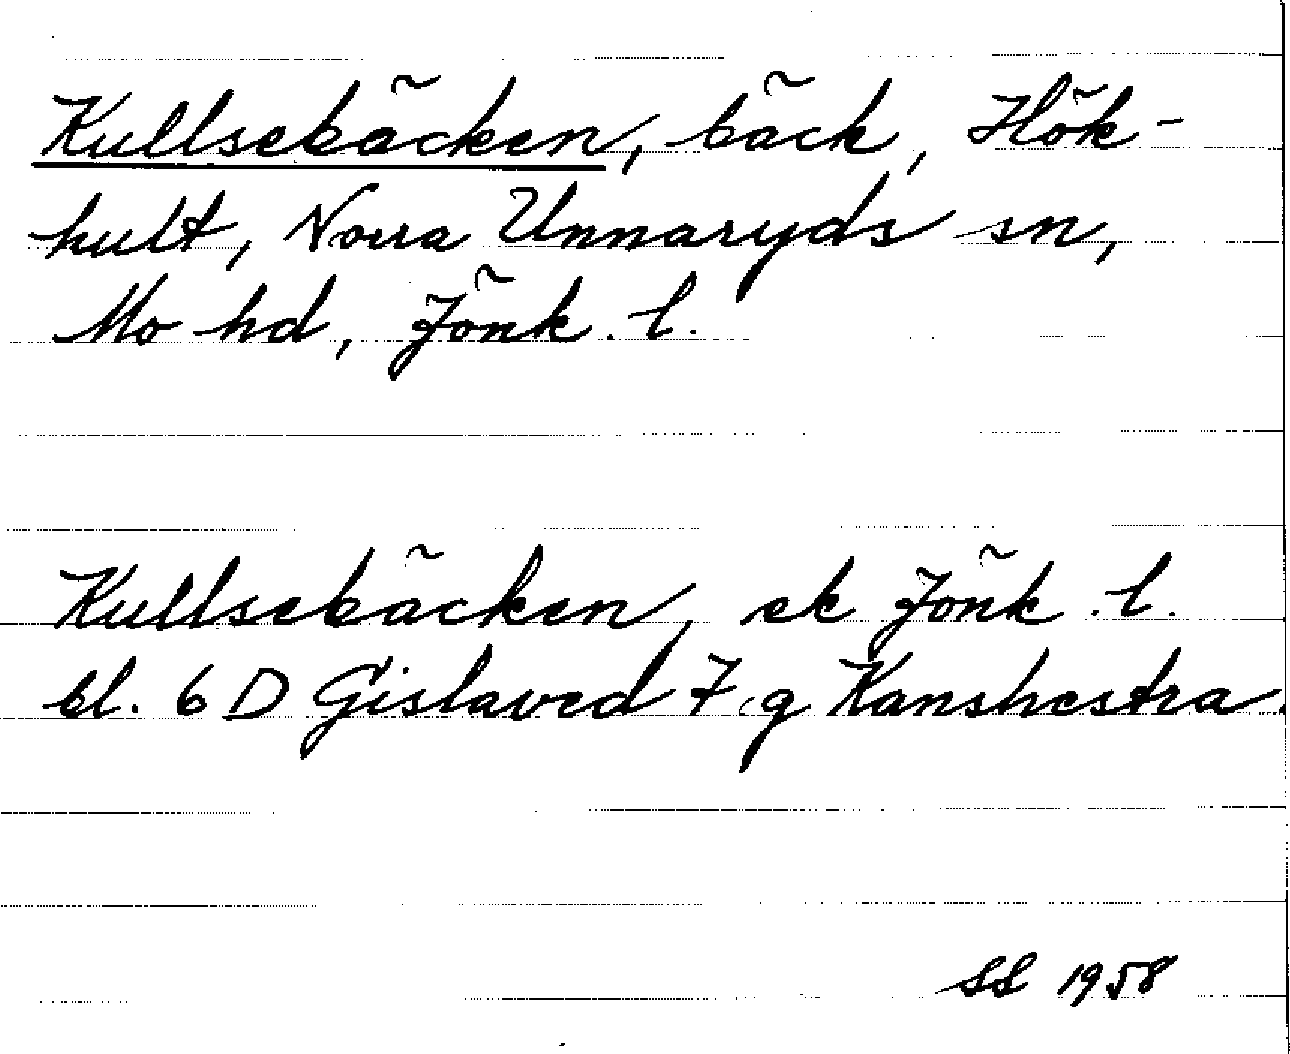 Kullsebäcken, bäck, Hök-
hult, Norra Unnaryds sn,
Mo hd, Jönk. l.
Kullsebäcken, ek Jönk. l.
bl. 6 D Gislaved 7 g Kanshestra.
SS 1958